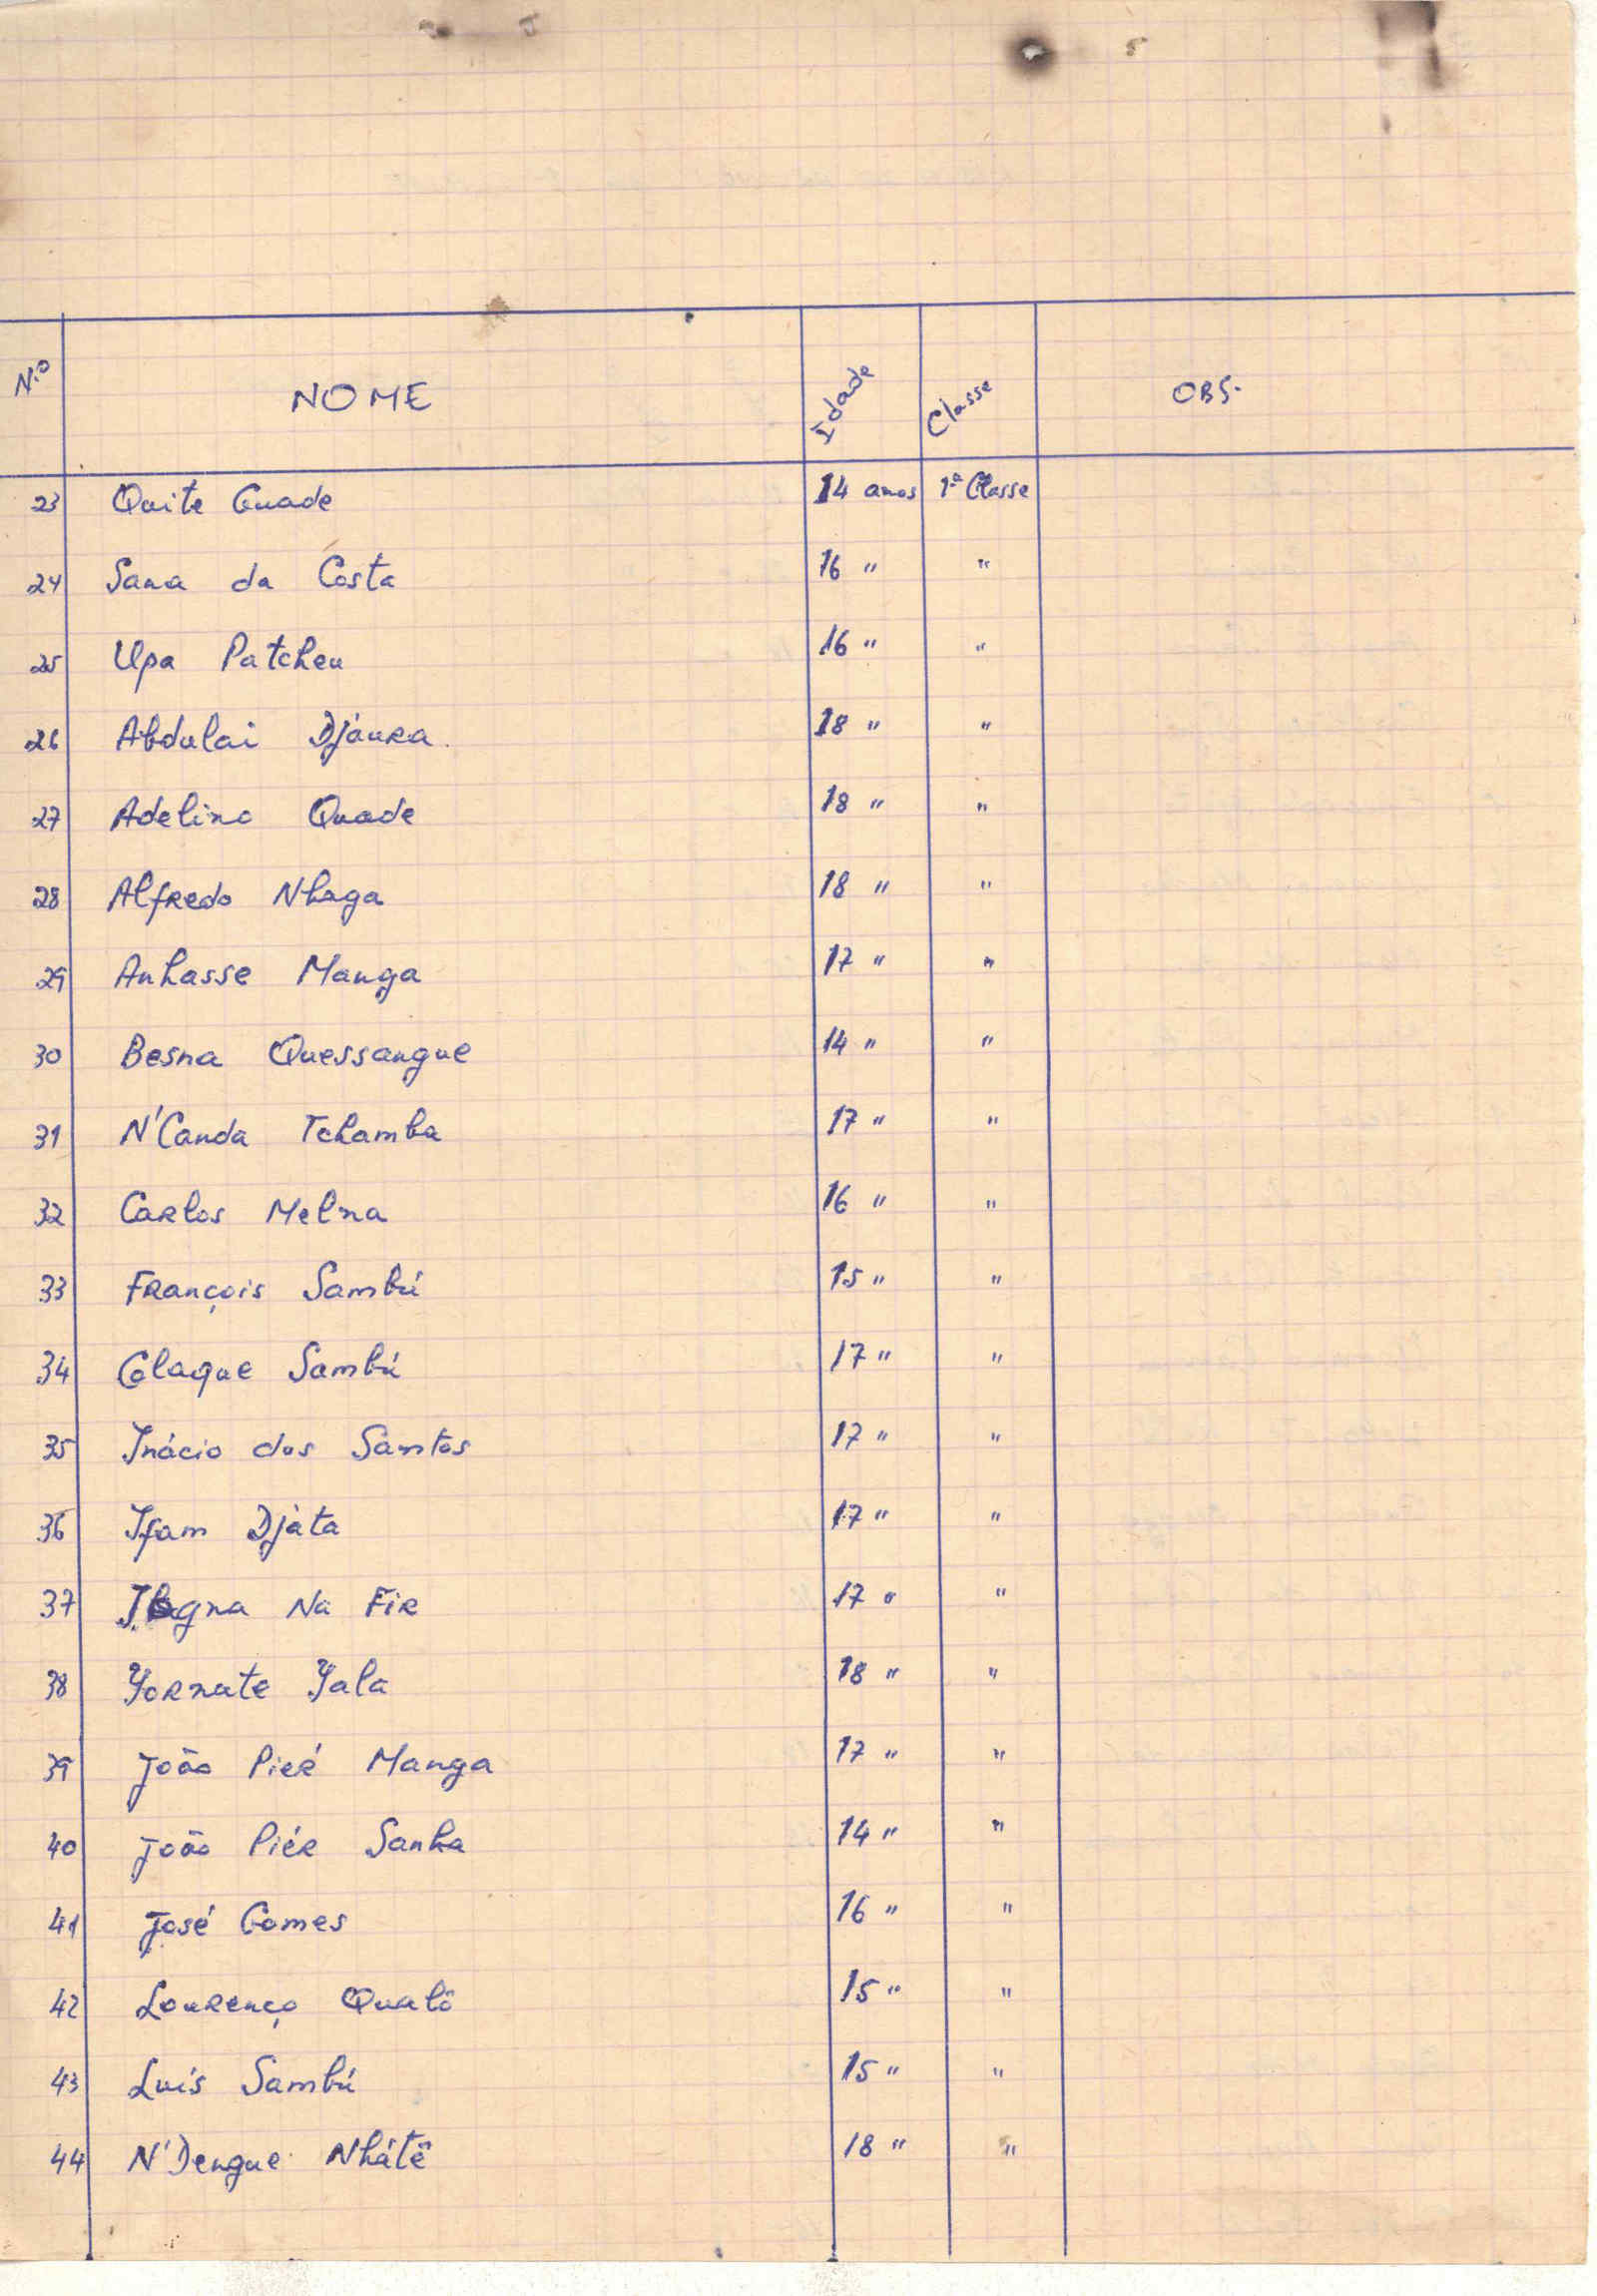 N.º NOME Idade Classe OBS.
23 Quite Guade 14 anos 1ª Classe
24 Sana da Costa 16 " "
25 Upa Patcheu 16 " "
26 Abdulai Djaura 18 " "
27 Adelino Quade 18 " "
28 Alfredo Nhaga 18 " "
29 Anhasse Manga 17 " "
30 Besna Quessangue 14 " "
31 N'Canda Tchamba 17 " "
32 Carlos Melna 16 " "
33 François Sambú 15 " "
34 Colaque Sambú 17 " "
35 Inácio dos Santos 17 " "
36 Ifam Djáta 17 " "
37 Na Fir 17 " "
38 Yornate Yala 18 " "
39 João Pieŕ Manga 17 " "
40 João Piér Sanha 14 " "
41 José Gomes 16 " "
42 Lourenço Qualô 15 " "
43 Luís Sambú 15 " "
44 N'Dengue Nhátê 18 " "